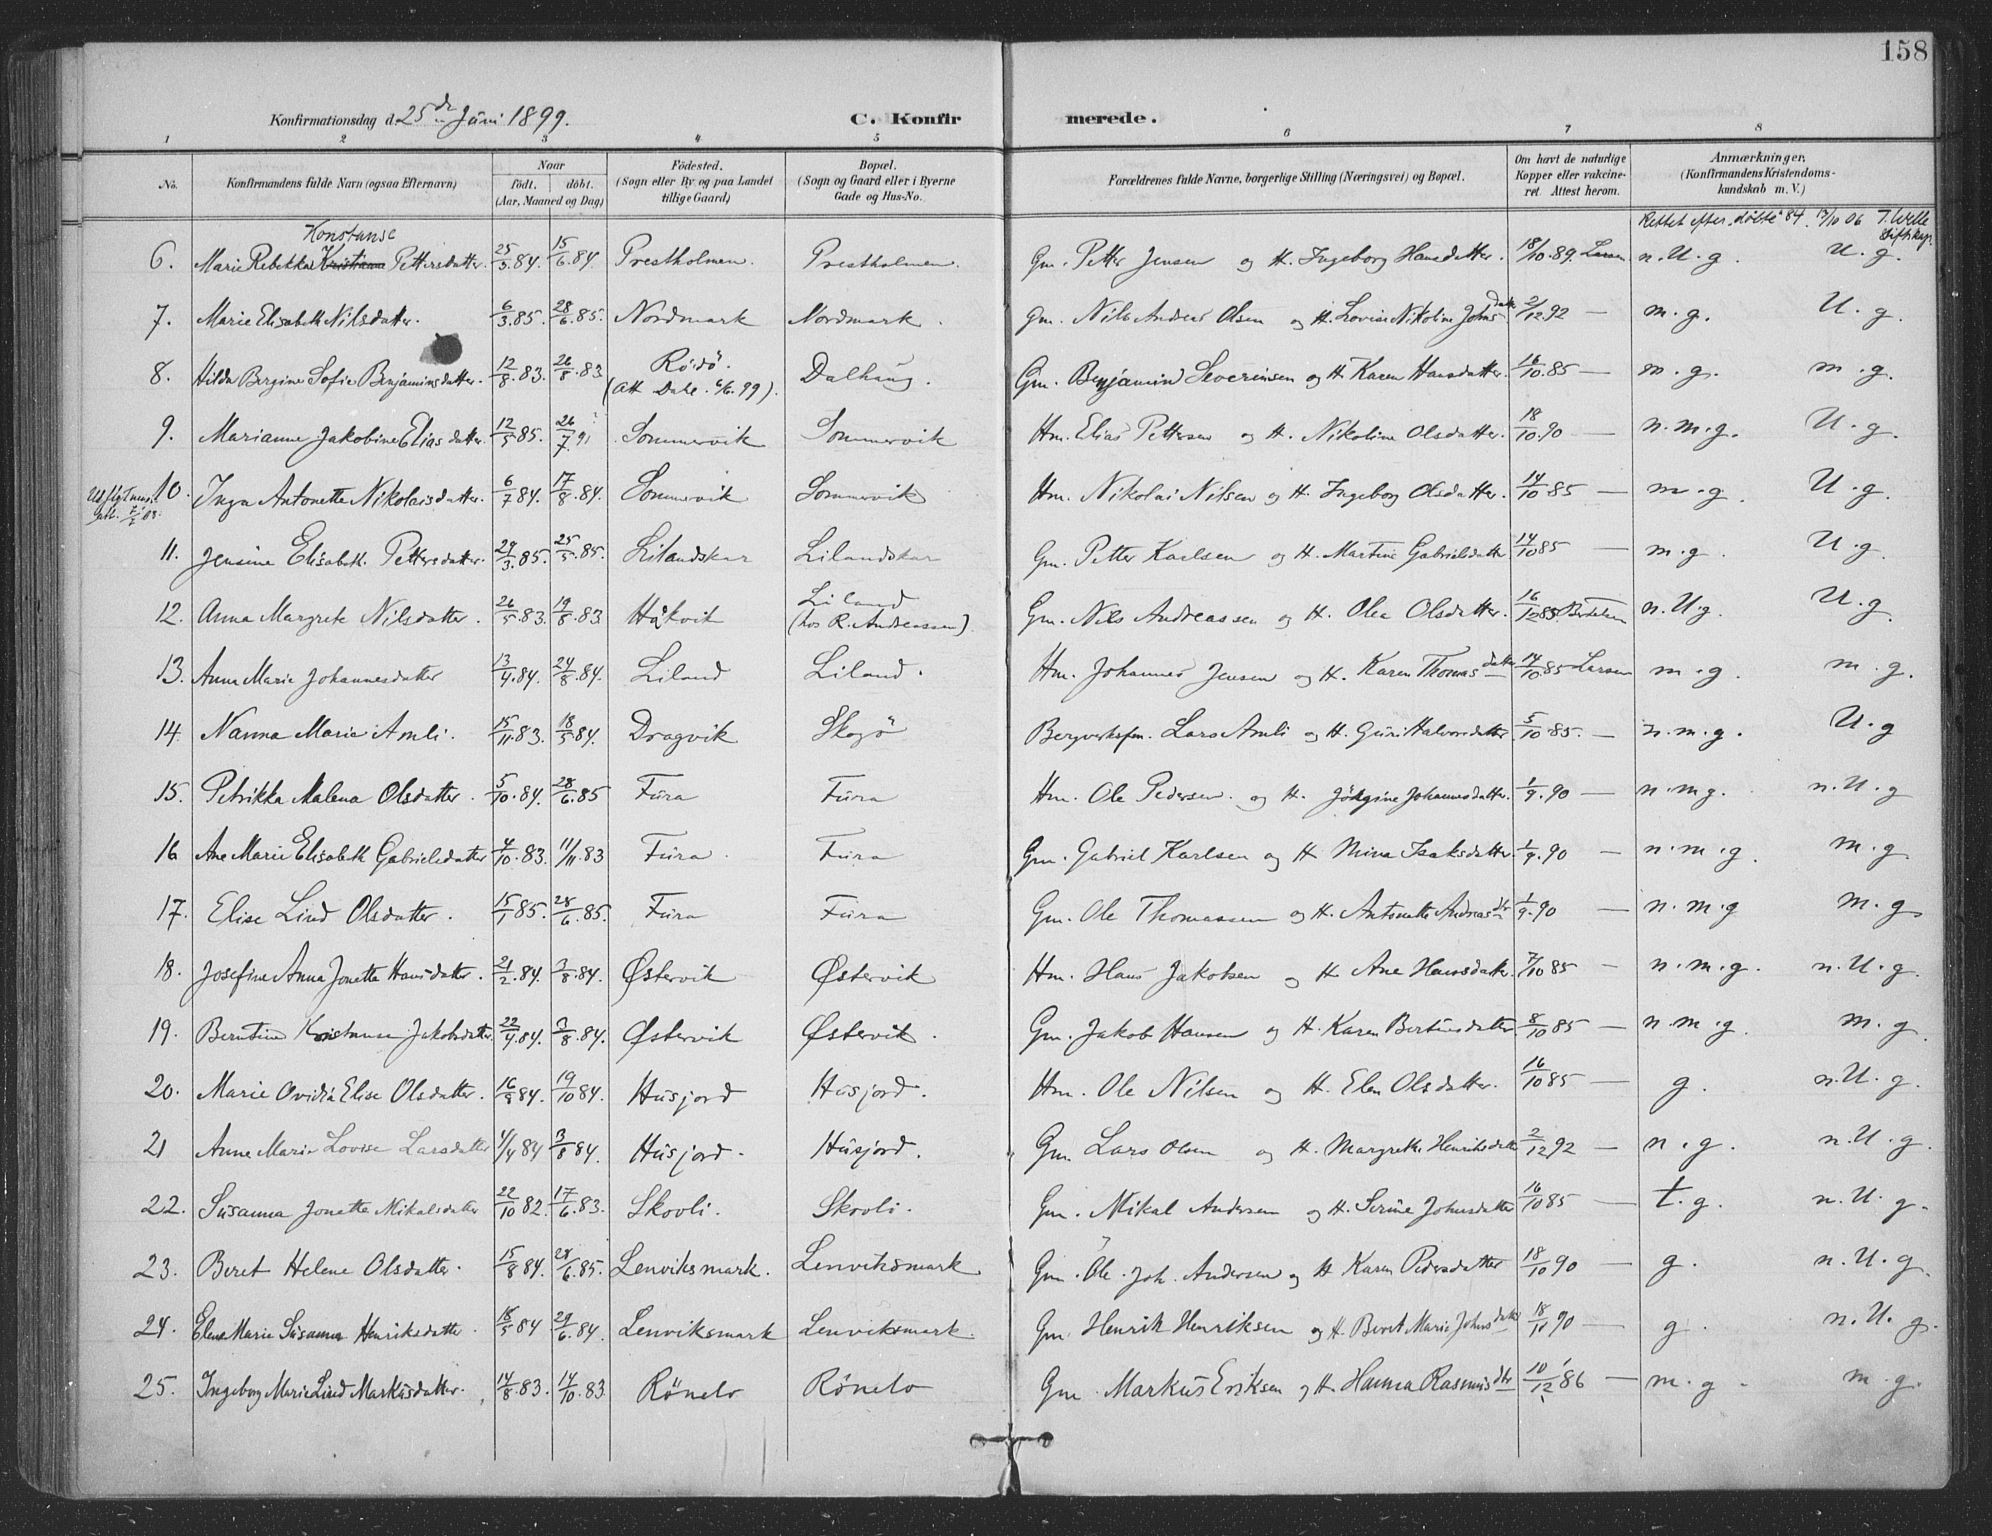 158
Konfirmationsdag d. 25de Juni 1899. C. Konfirmerede.
1 2 3 4 5 6 7 8
No. Konfirmandens fulde Navn (ogsaa Efternavn) Naar født. døbt. (Aar, Maaned og Dag) Födested. (Sogn eller By og paa Landet tillige Gaard) Bopæl. (Sogn og Gaard eller i Byerne Gade og Hus-No. Forældrenes fulde Navne, borgerlige Stilling (Næringsvei) og Bopæl. Om havt de naturlige Kopper eller vaccineret. Attest herom. Anmærkninger, (Konfirmandens Kristendomskundskab m. V.)
Rettet efter "døbte" 84. 13/10 06
Konstanse
6. Marie Rebekka Kristiana Pettersdatter. 25/3.84. 15/6.84. Prestholmen. Prestholmen. Gm. Petter Jensen og H. Ingeborg Hansdatter. 18/10.89. Larsen n.U.g. U.g.
7. Marie Elisabeth Nilsdatter. 6/3.85. 28/6.85. Nordmark Nordmark. Gm. Nils Andreas Olsen og H. Lovise Nikoline Johnsdatt. 2/12 92 — m.g. U.g.
8. Hilda Bergine Sofie Benjaminsdatter. 12/8.83. 26/8.83 Rødö. (Att. Dale. 6/6.99). Dalhaug. Gm. Benjamin Severinsen og H. Karen Hansdatter. 16/10.85 — m.g. m.g.
9. Marianne Jakobine Eliasdatter. 12/5 85. 26/7 91 Sommervik Sommervik Hm. Elias Pettersen og H. Nikoline Olsdatter. 18/10.90 — n.m.g. U.g.
10. Inga Antonette Nikolaisdatter. 6/7 84. 17/8.84. Sommervik Sommervik Hm. Nikolai Nilsen og H. Ingeborg Olsdatter. 14/10 85 — m.g. U.g.
11. Jensine Elisabeth Pettersdatter. 29/3.85. 25/5.85. Lilandskar Lilandskar Gm. Petter Karlsen og H. Martine Gabrielsdatter 14/10 85 — m.g. U.g.
12. Anna Margrete Nilsdatter. 26/5.83. 19/8.83. Håkvik Liland (hos R. Andreassen). Gm. Nils Andreassen og H. Olea Olsdatter. 16/12 85 n.U.g. U.g.
13. Anna Marie Johannesdatter 13/4.84. 24/8.84. Liland Liland. Hm. Johannes Jensen og H. Karen Thomasdatter 14/10.85 Larsen m.g. m.g.
14. Nanna Marie Amli. 15/11.83. 18/5 84. Dragvik Skogö Bergverksfm. Lars Amli og H. Guri Halvorsdatter. 5/10 85. — n.m.g. U.g
15. Petrikka Malena Olsdatter. 5/10.84. 28/6.85 Fura Fura Hm. Ole Pedersen og H. Jörgine Johannesdatter. 1/9.90 — n.m.g. n.U.g
16 Ane Marie Elisabeth Gabrielsdatter 4/10.83. 11/11 83 Fura. Fura Gm. Gabriel Karlsen og H. Mina Isaksdatter. 1/9.90 — n.m.g. m.g
17. Elise Lind Olsdatter. 15/1 85. 28/6.85. Fura Fura Gm. Ole Thomassen og H. Antonette Andreasdtr 1/9.90 — n.m.g m.g
18. Josefine Anna Jonetta Hansdatter. 21/2.84. 3/8.84. Østervik Østervik Hm. Hans Jakobsen og H. Ane Hansdatter. 7/10 85 — n.m.g. n.U.g
19. Berntine Konstanse Jakobsdatter. 22/4 84. 3/8.84. Østervik Østervik. Gm. Jakob Hansen og H. Karen Berntinsdatter 8/10 85 — n.m.g. m.g.
20. Marie Ovidia Elise Olsdatter. 16/8 84. 19/10 84. Husjord Husjord. Hm. Ole Nilsen og H. Elen Olsdatter. 16/10 85 — g. n.U.g.
21 Anne Marie Lovise Larsdatter 4/4 84 3/8 84. Husjord. Husjord. Gm. Lars Olsen og H. Margrethe Henriksdatt 2/12 92 — n.g. n.U.g.
22. Susanna Jonetta Mikalsdatter 22/10 82. 17/6.83. Skovli. Skovli. Gm. Mikal Andersen og H. Serine Johnsdatter 16/10 85 — t.g. n.U.g.
23. Beret Helene Olsdatter. 15/8 84. 28/6.85. Lenviksmark. Lenviksmark Gm. Ole Joh. Andersen og H Karen Pedersdatter 18/10 90 — g. n.U.g.
24. Elena Marie Susanna Henriksdatter. 18/5 84 29/6.84. Lenviksmark Lenviksmark. Gm. Henrik Henriksen og H. Beret Marie Johnsdatter 18/11 90 — g. n.U.g.
25. Ingeborg Marie Lind Markusdatter. 14/8.83. 14/10.83. Rönelv Rönelv Gm. Markus Eriksen og H. Hanna Rasmusdtr 10/12 86 — m.g. m.g.